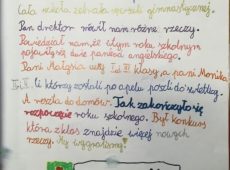 Cała szkoła zebrała się w sali gimnastycznej.
Pan dyrektor mówił nam różne rzeczy.
Powiedział nam, że w tym roku szkolnym
pojawiają się dwie panie od angielskiego.
Pani Małgosia uczy I, II i III klasy, a pani Monika
Ci którzy zostali po apelu poszli do świetlicy.
A reszta do domów. Tak zakończyło się
rozpoczęcie roku szkolnego. Był konkurs
która z klas znajdzie więcej nowych
rzeczy. My wygraliśmy!